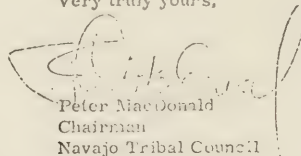 Very truly yours,
Peter MacDonald
Chairman
Navajo Tribal Council